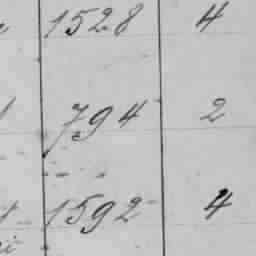 1528 4
794 2
1592 4